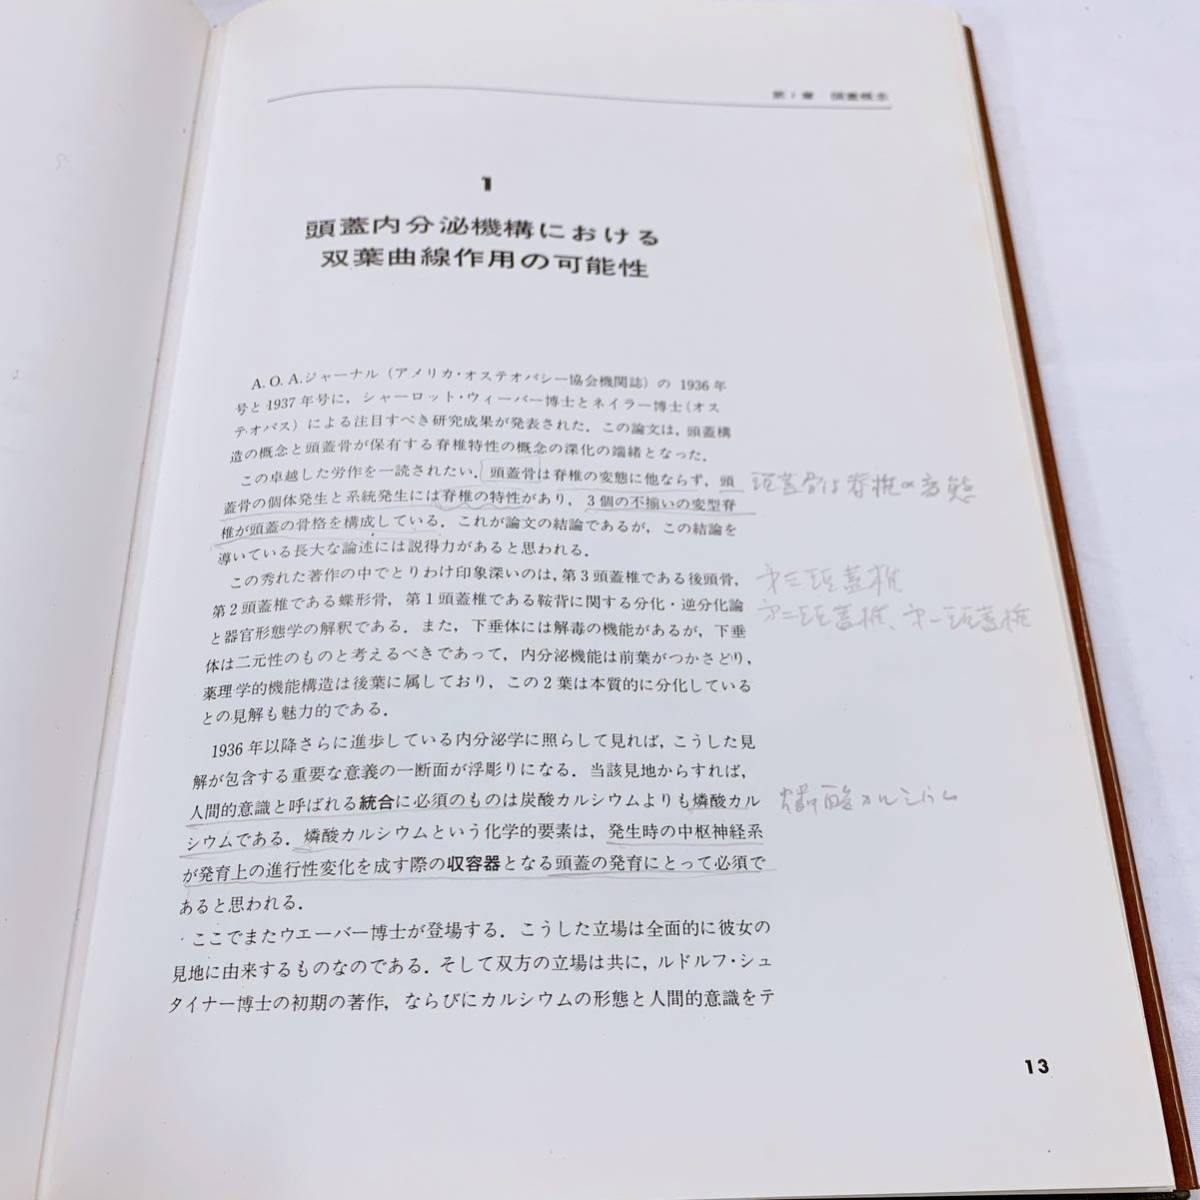 第1章 頭蓋概念
1
頭蓋内分泌機構における
双葉曲線作用の可能性
A.O.A.ジャーナル（アメリカ・オステオパシー協会機関誌）の 1936年
号と1937年号に，シャーロット・ウィーバー博士とネイラー博士（オス
テオパス）による注目すべき研究成果が発表された．この論文は，頭蓋構
造の概念と頭蓋骨が保有する脊椎特性の概念の深化の端緒となった．
この卓越した労作を一読されたい．頭蓋骨は脊椎の変態に他ならず，頭
蓋骨の個体発生と系統発生には脊椎の特性があり，3個の不揃いの変型脊
椎が頭蓋の骨格を構成している．これが論文の結論であるが，この結論を
導いている長大な論述には説得力があると思われる．
頭蓋骨は脊椎の変態
この秀れた著作の中でとりわけ印象深いのは，第3頭蓋椎である後頭骨，
第2頭蓋椎である蝶形骨，第1頭蓋椎である鞍背に関する分化・逆分化論
と器官形態学の解釈である．また，下垂体には解毒の機能があるが，下垂
体は二元性のものと考えるべきであって，内分泌機能は前葉がつかさどり，
薬理学的機能構造は後葉に属しており，この2葉は本質的に分化している
との見解も魅力的である．
第三頭蓋椎
第二頭蓋椎、第一頭蓋椎
1936年以降さらに進歩している内分泌学に照らして見れば，こうした見
解が包含する重要な意義の一断面が浮彫りになる．当該見地からすれば，
人間的意識と呼ばれる統合に必須のものは炭酸カルシウムよりも燐酸カル
シウムである．燐酸カルシウムという化学的要素は，発生時の中枢神経系
が発育上の進行性変化を成す際の収容器となる頭蓋の発育にとって必須で
あると思われる．
燐酸カルシウム
ここでまたウエーバー博士が登場する．こうした立場は全面的に彼女の
見地に由来するものなのである．そして双方の立場は共に，ルドルフ・シュ
タイナー博士の初期の著作，ならびにカルシウムの形態と人間的意識をテ
13